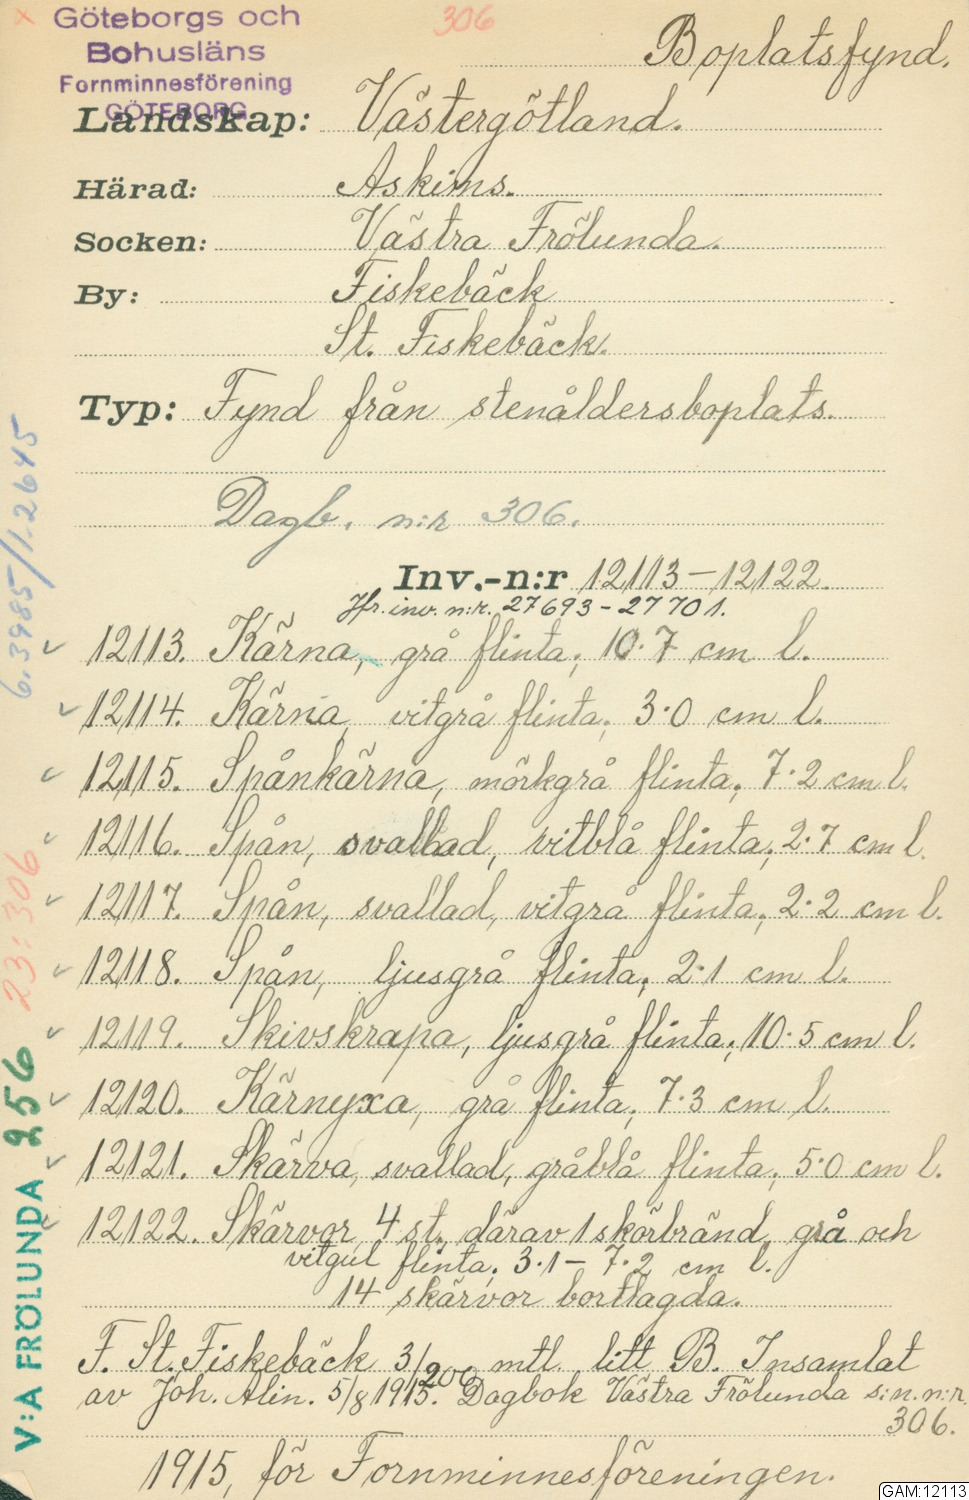 Göteborgs och
Bohusläns
Fornminnesförening
GÖTEBORG
306
Boplatsfynd.
Landskap: Västergötland.
Härad: Askims.
Socken: Västra Frölunda.
By: Fiskebäck
St. Fiskebäck.
Typ: Fynd från stenåldersboplats.
Dagb. n:r 306.
Inv.-n:r 12113-12122.
Jfr. inv. n:r. 27693-27701.
12113. Kärna, grå flinta; 10.7 cm l.
12114. Kärna, vitgrå flinta; 3.0 cm l.
12115. Spånkärna, mörkgrå flinta; 7.2 cm l.
12116. Spån, svallad, vitblå flinta; 2.7 cm l.
12117. Spån, svallad, vitgrå flinta; 2.2 cm l.
12118. Spån, ljusgrå flinta; 2.1 cm l.
12119. Skivskrapa, ljusgrå flinta; 10.5 cm l.
12120. Kärnyxa, grå flinta; 7.3 cm l.
12121. Skärva, svallad, gråblå flinta; 5.0 cm l.
12122. Skärvor, 4 st. därav 1 skörbränd, grå och
vitgul flinta; 3.1-7.2 cm l.
14 skärvor bortlagda.
F. St. Fiskebäck 3/200 mtl litt B. Insamlat
av Joh. Alin. 5/8 1915. Dagbok Västra Frölunda s:n. n:r
306.
1915, för Fornminnesföreningen.
V:A FRÖLUNDA 256
23:306
6.3985/1.2645
GAM:12113